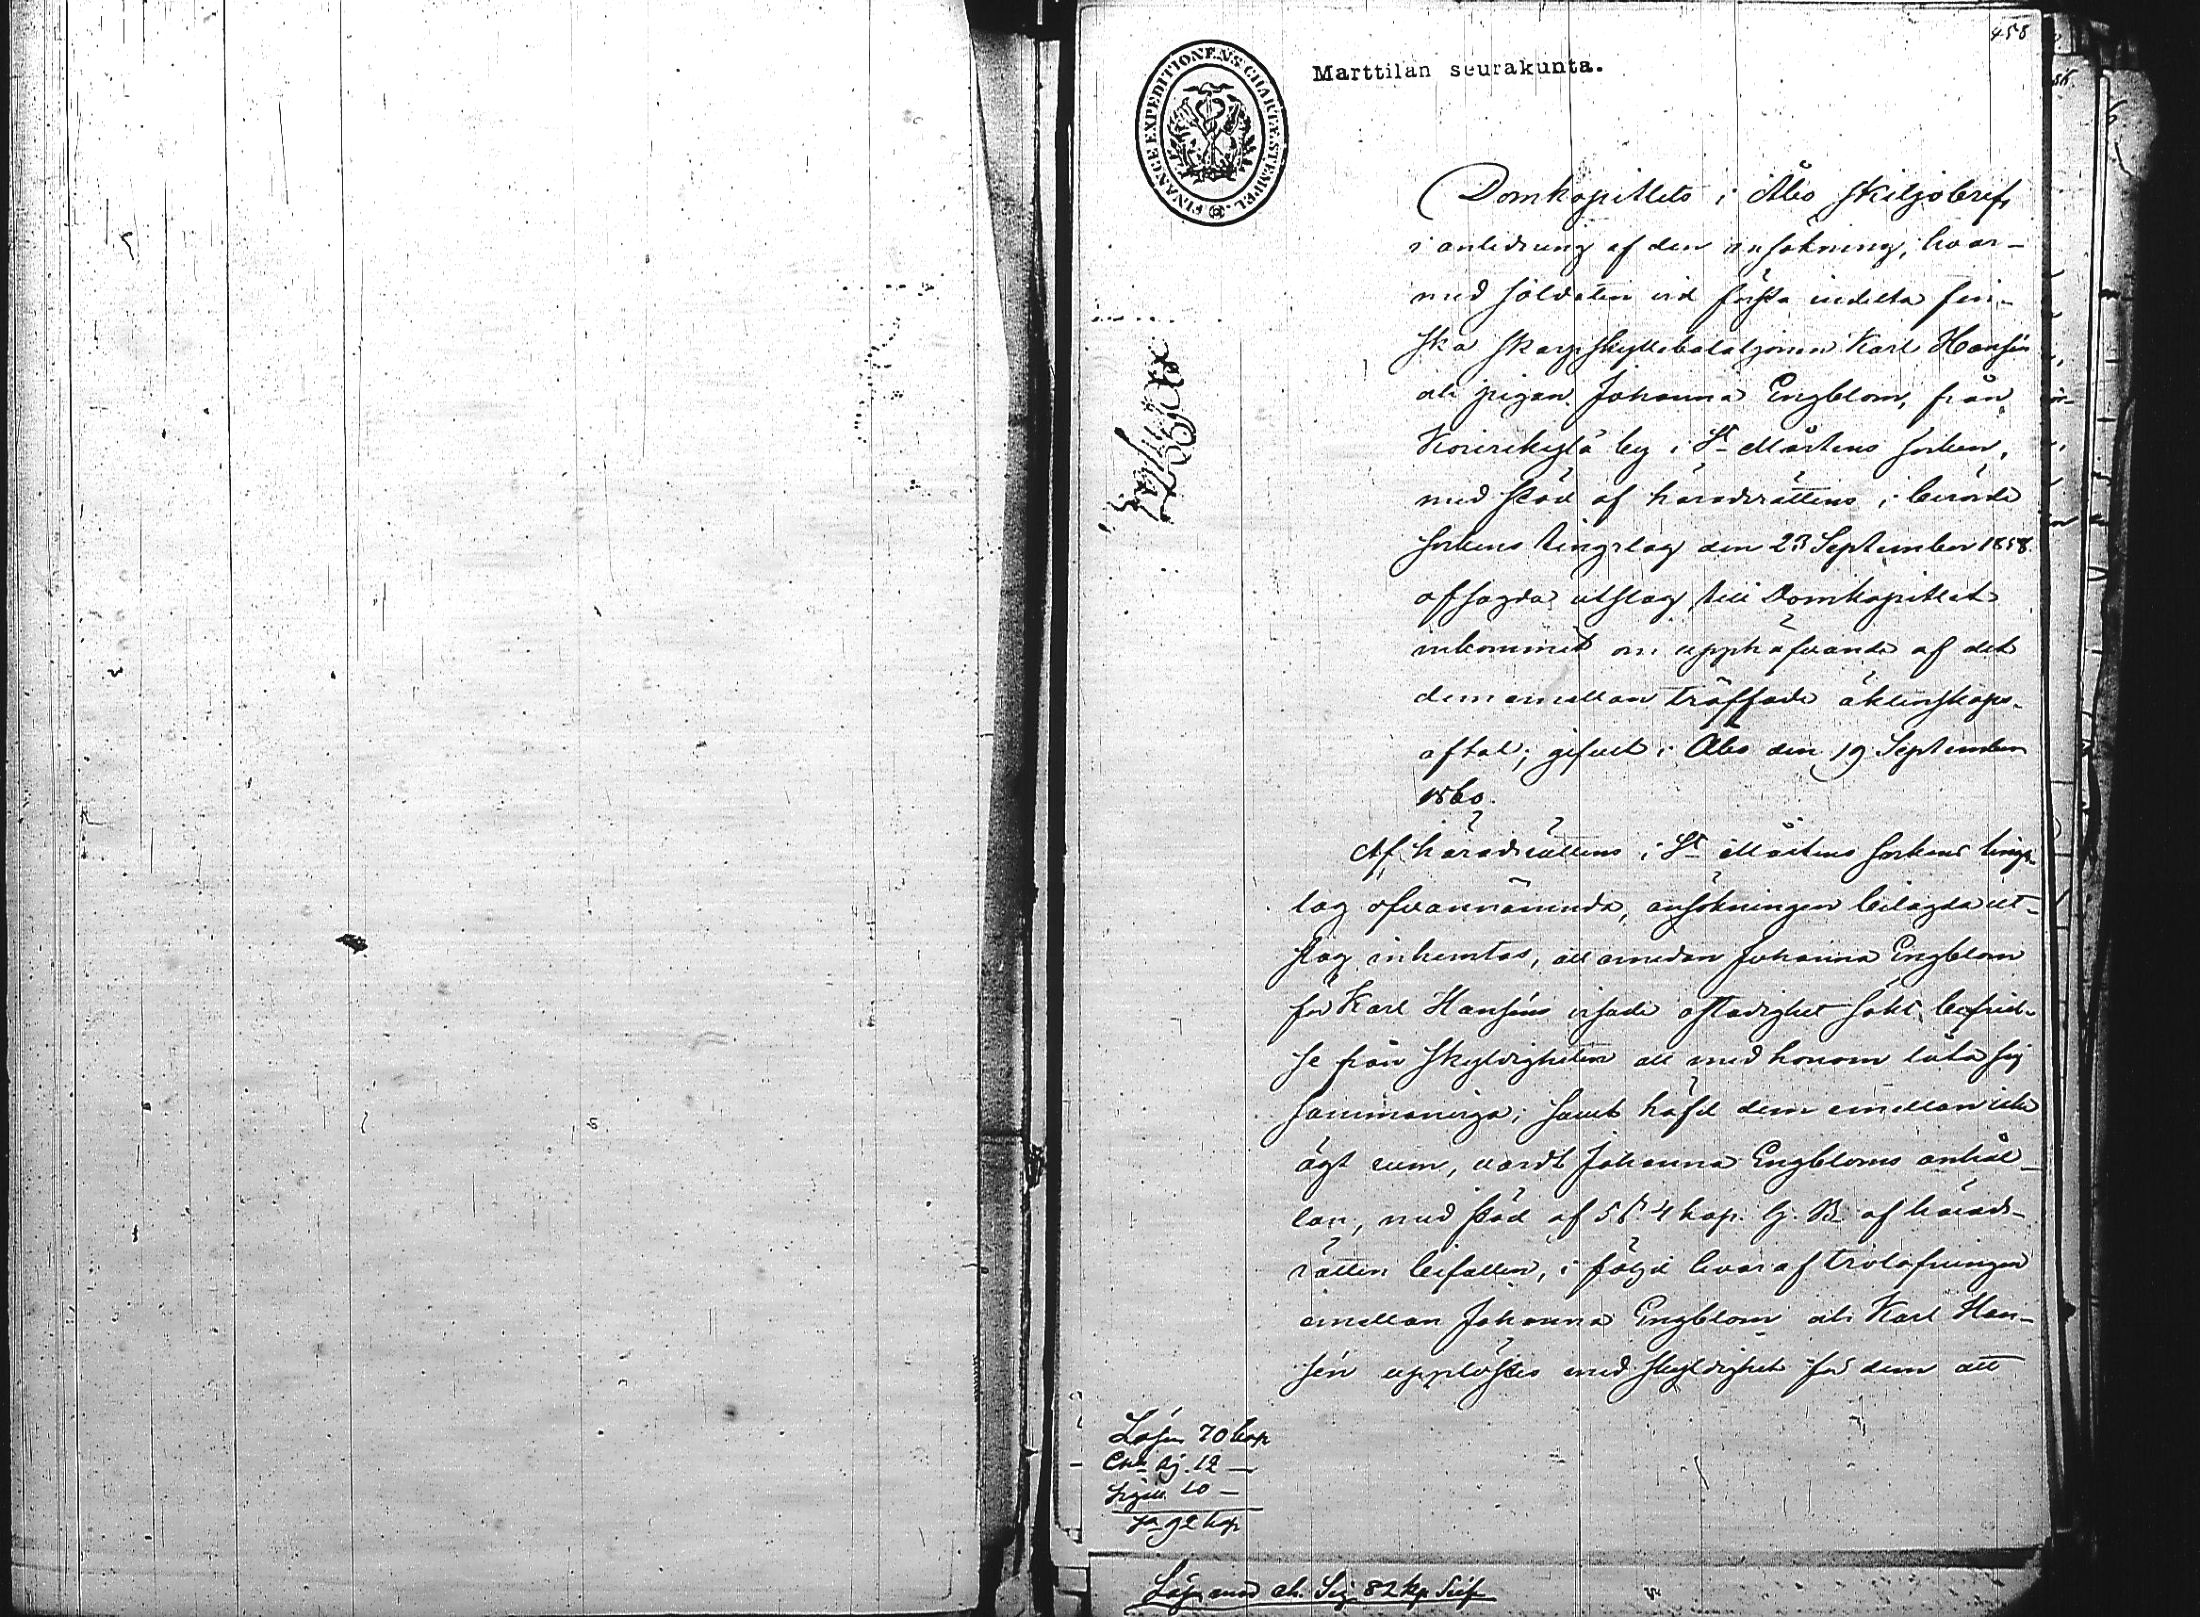 458
Marttilan seurakunta.
FINANCE EXPEDITIONENS CHARTÆ STEMPEL.
Domkapitlets i Åbo skiljobref,
i anledning af den ansökning, hvar-
med soldaten vid första indelta fin-
ska skarpskyttebataljonen Karl Hansén
och pigan Johanna Engblom, från
by i St Mårtens socken,
med stöd af häradsrättens i berörde
sockens tingslag den 23 September 1858
afsagda utslag till Domkapitlet
inkommit om upphäfvande af det
dem emellan träffade äktenskaps-
aftal; gifvet i Åbo den 19 September
1860.
Af häradsrättens i St Mårtens sockens tings-
lag ofvannämnda, ansökningen bilagda ut-
slag inhemtas, att emedan Johanna Engblom
för Karl Hanséns ostadighet sökt befriel-
se från skyldigheten att med honom låta sig
sammanviga; samt häfd dem emellan icke
ägt rum, vardt Johanna Engbloms anhål-
lan, med stöd af 5 §. 4 kap. G. B. af härads-
rätten bifallen, i följd hvaraf trolofningen
emellan Johanna Engblom och Karl Han-
sén upplöstes med skyldighet för dem att
Lösen 70 kop
12 —
Sigill 10 —
Sa 92 kop
Lösen med Sig 82 kop Silf